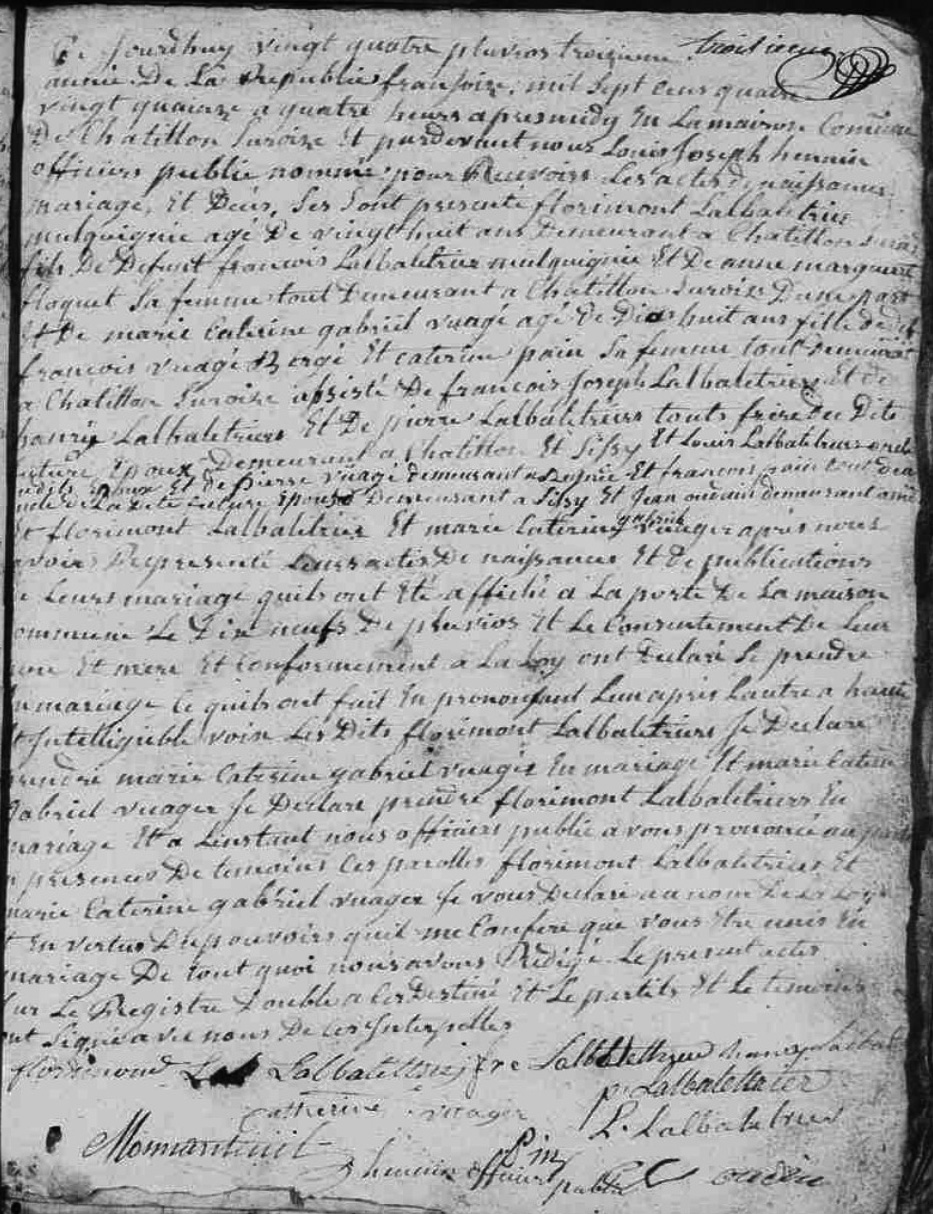 Ce Jourdhuy vingt quatre pluvios troizieme troisieme
année De La Republic françoize, mil sept cens quatre
vingt quinze a quatre heurs apresmidy En La maison Comune
De Chatillon Suroize Et pardevant nous Louis Joseph hennin
officiers public nommé pour Recevoirs Les actes denaissances
mariage, Et Décis, Ses Sont presenté florimont Lalbaletrier
mulquignié agé De vingt huit ans Demeurant a Chatillon Suroiz
fils De Defunt francois Lalbaletrier mulquignié Et De anne marguerit
floquet Sa femme tout Demeurant a Chatillon Suroize Dune part
Et De marie Caterine gabriel vuagé agé De Dix huit ans fille De def
françois vuagé Bergé Et caterine pain Sa femme tout Demeurant
a Chatillon Suroize assisté De francois Joseph Lalbaletrier Et de
hanry Lalbaletriers Et De pierre Lalbaletriers touts frere du Dits
future Epoux Demeurant a Chatillon Et Sissy Et Louis Lalbaletrier oncle
Et De pierre vuagé demeurant a Et francois pain tout deux
De La Dite future Epouse Demeurant a Sissy Et Jean oudain demeurant
Et florimont Lalbaletrier Et marie Caterine gabriel vuager après nous
avoir Representé Leurs actes De naissances Et De publications
De Leurs mariage quils ont Eté affiché a La porte De La maison
commune Le Dix neufs De pluvios Et Le Consentement De Leur
Et mere Et Conformement a La Loy ont Declaré Se prendre
En mariage Ce quils ont fait En prononsant Lun après Lautre a haute
Et Intelligible voix Les Dits florimont Lalbaletriers Je Declare
prendre marie Caterine gabriel vuagér En mariage Et marie Caterin
gabriel vuager Je Declare prendre florimont Lalbaletriers En
mariage Et a Linstant nous officiers public avons prononcé au
En presences De temoins Ces parolles florimont Lalbaletrier Et
marie Caterine gabriel vuager Je vous Declare au nom De La Loy
Et En vertus De pouvoirs quil me Confere que vous Etre unis En
mariage De tout quoi nous avons Redigé Le present actes
Sur Le Registre Double a Ces Destiné Et Le partits Et Le temoins
ont Signé avec nous De Ces Interpelles
florimond Lalbalettrier fr Lalbalettrier hanry Lalbal
p. Lalbalettrier
Catherine vuager
L. Lalbaletrier
Monnanteuil Pin
hennin officiers public oudin